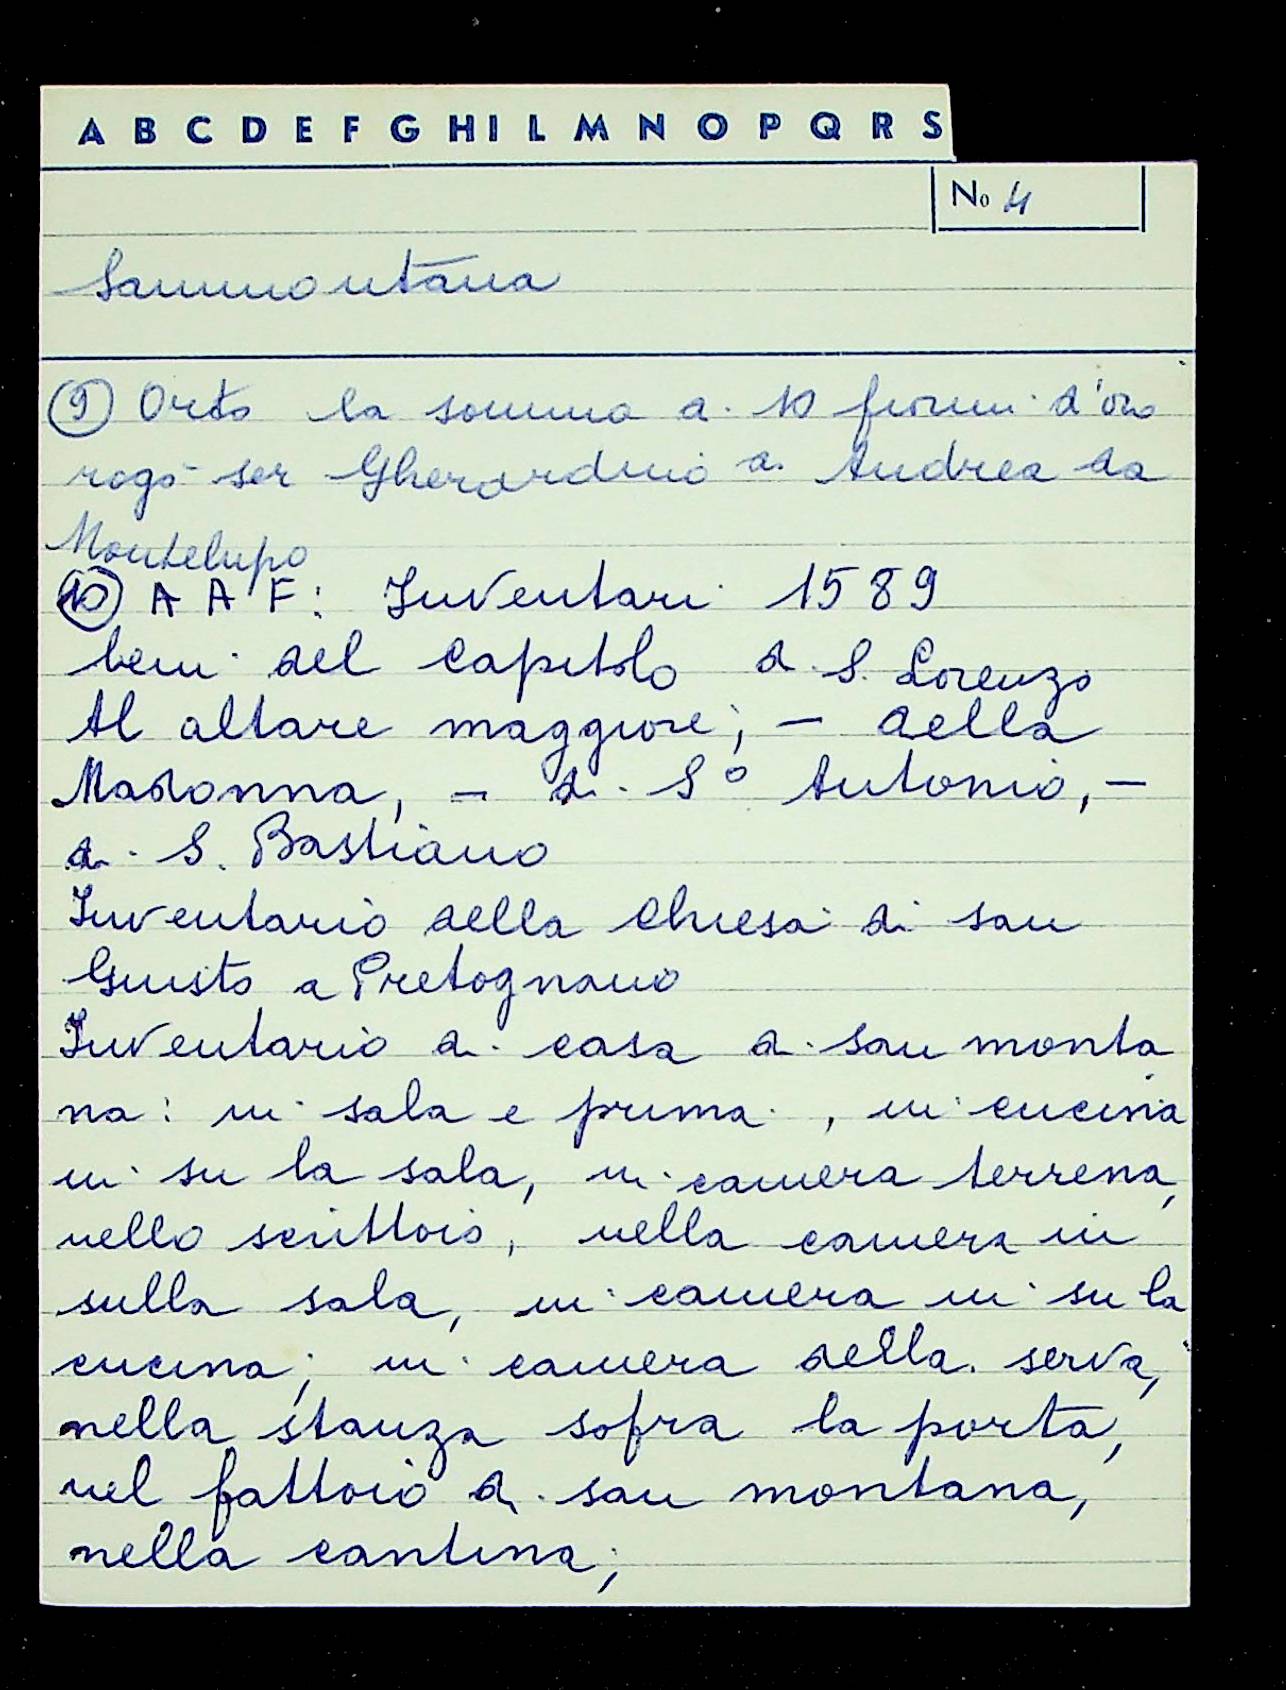 A B C D E F G H I L M N O P Q R S
No 4
Sammontana
⑨ Orto la somma di 10 fiorini d'oro
rogò ser Gherardino di Andrea da
Montelupo
⑩ A A F: Inventari 1589
beni del Capitolo di S. Lorenzo
Al altare maggiore; – della
Madonna, – di S° Antonio, –
di S. Bastiano
Inventario della Chiesa di san
Giusto a Pretognano
Inventario di casa di san monta
na: in sala e prima , in cucina
in su la sala, in camera terrena,
nello scrittoio, nella camera in
sulla sala, in camera in su la
cucina; in camera della serva,
nella stanza sopra la porta,
nel fattoio di san montana,
nella cantina;